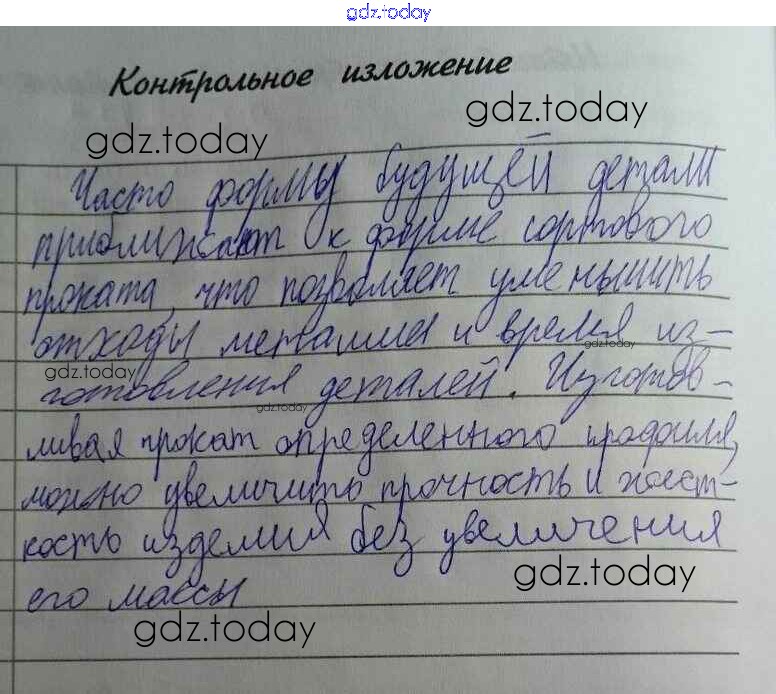 gdz.today
Контрольное изложение
gdz.today
gdz.today
Часто формы будущей детали
приближают к форме сортового
проката, что позволяет уменьшить
отходы металла и время из-
gdz.today
gdz.today
готовления деталей. Изготов-
gdz.today
ливая прокат определенного профиля,
можно увеличить прочность и жест-
кость изделия без увеличения
его массы
gdz.today
gdz.today